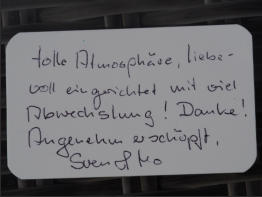 tolle Atmosphäre, liebe-
voll eingerichtet mit viel
Abwechslung! Danke!
Angenehm erschöpft,
Sven & Mo